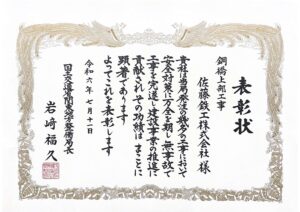 表彰状
鋼橋上部工事
佐藤鉄工株式会社 様
貴社は当局発注の多くの工事において
安全対策に万全を期し無事故で
工事を完遂し建設事業の推進に
貢献されその功績はまことに
顕著であります
よってこれを表彰します
令和六年七月十二日
国土交通省関東地方整備局長
岩﨑福久